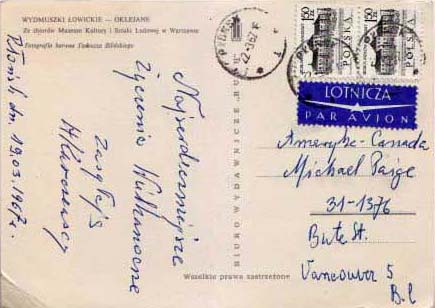 WYDMUSZKI ŁOWICKIE — OKLEJANE
Ze zbiorów Muzeum Kultury i Sztuki Ludowej w Warszawie
Fotografia barwna Tadeusza Bilińskiego
Płońsk dn. 19.03.1967 r.
Najserdeczniejsze
życzenia Wielkanocne
BIURO WYDAWNICZE „RUCH”
Wszelkie prawa zastrzeżone
POLSKA
POLSKA
LOTNICZA
PAR AVION
Ameryka-Canada
Michael Paige
31-1376
Bute St.
Vancouver 5
B.C